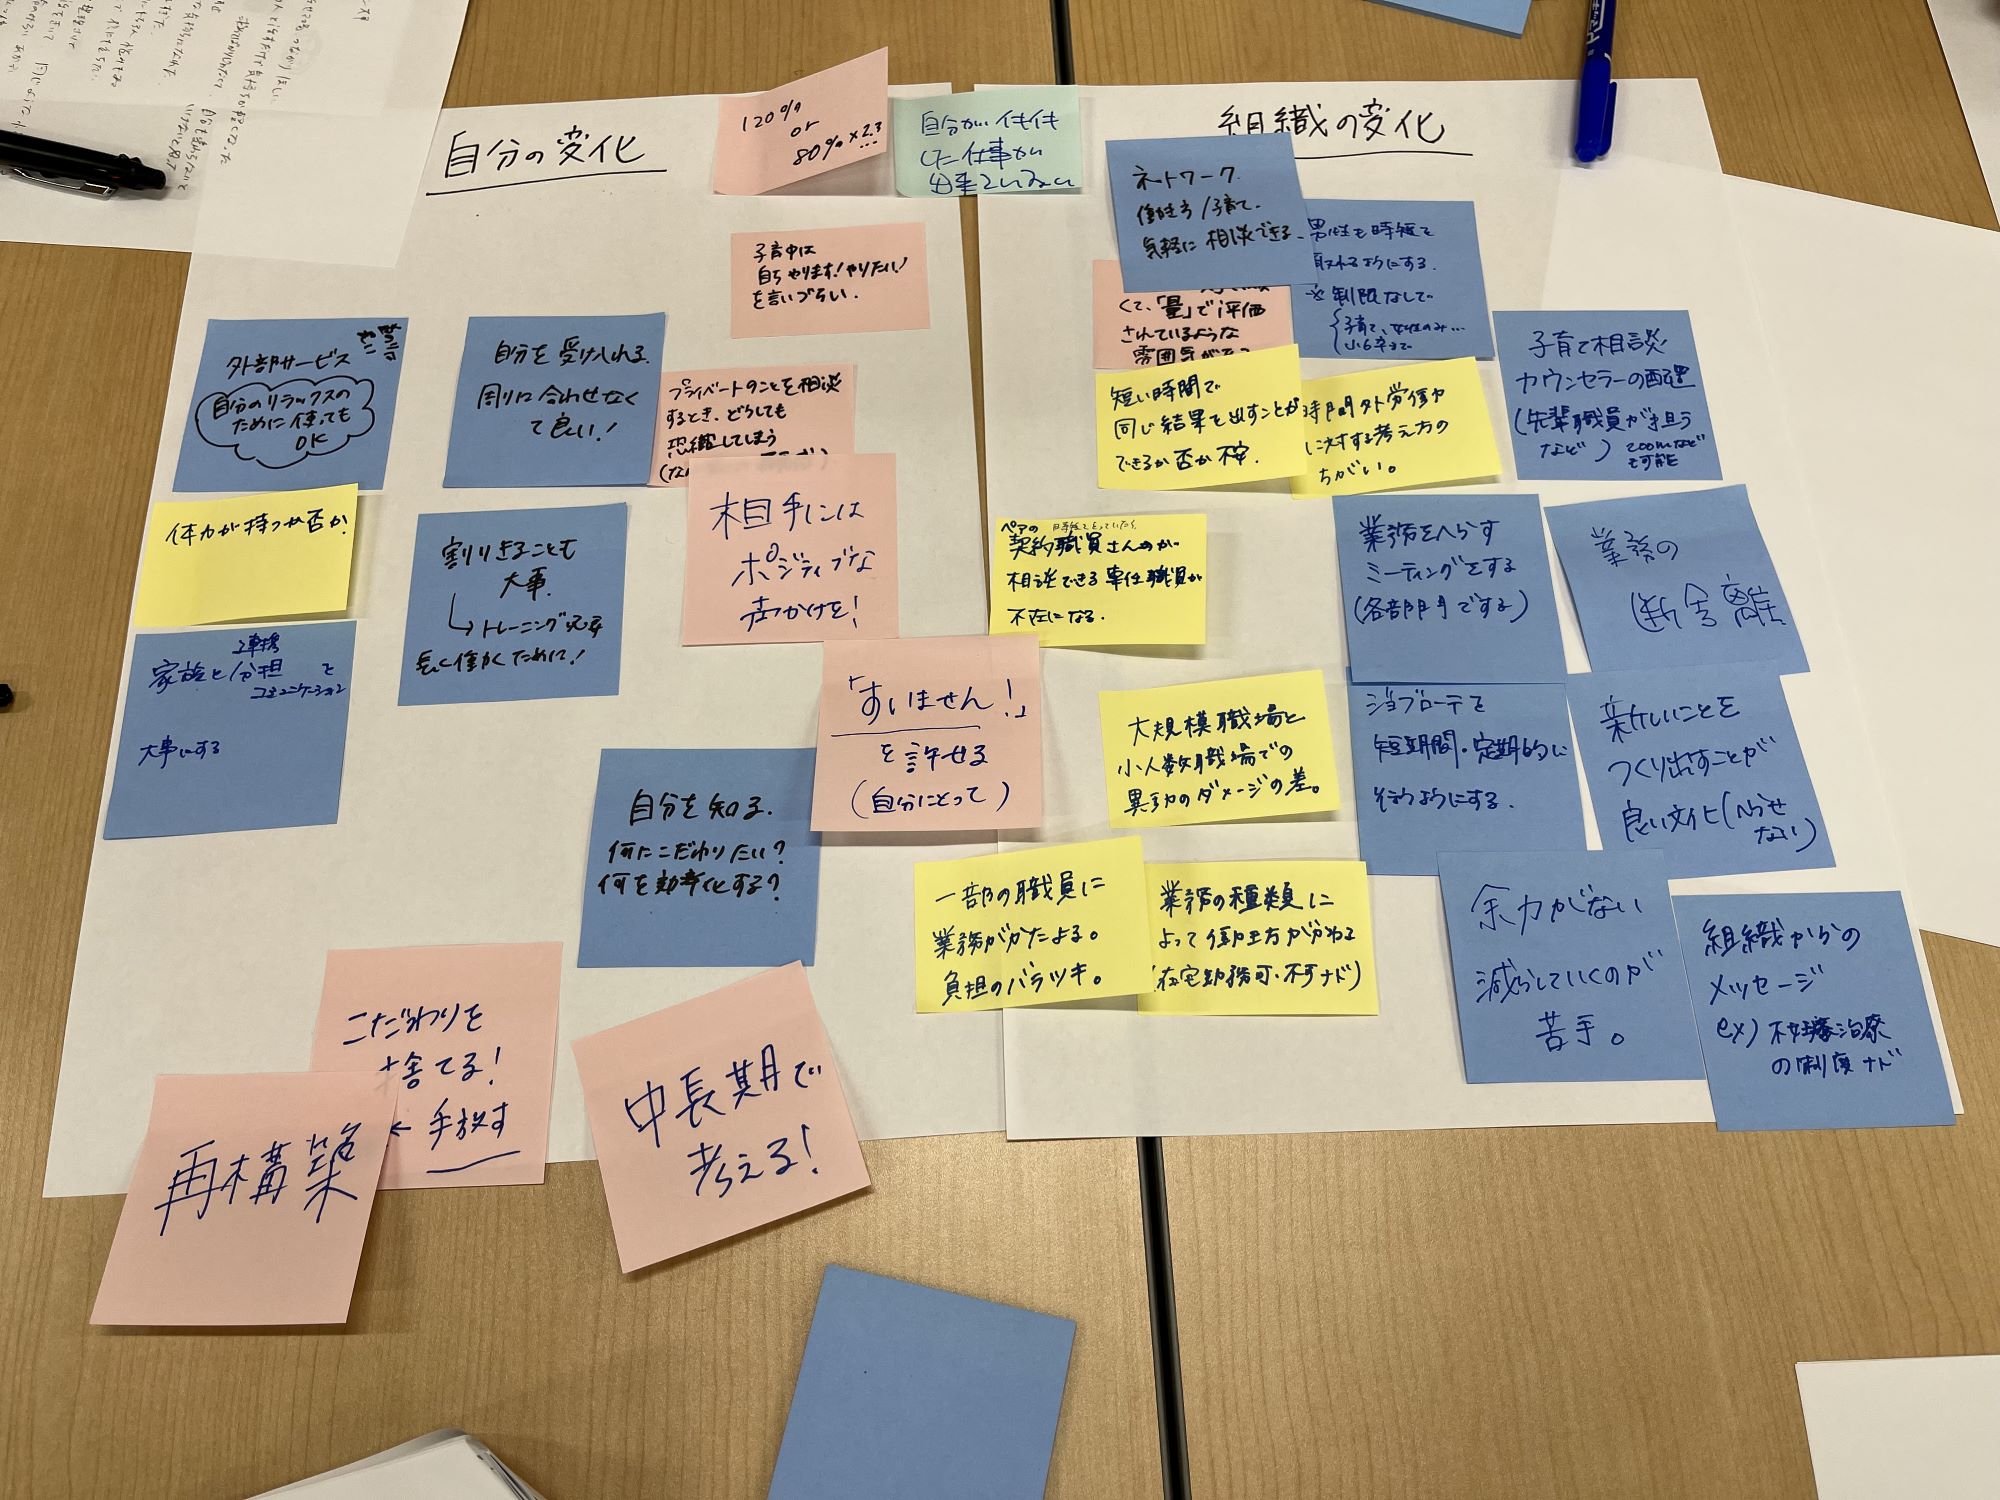 自分の変化
120%
or
80%×2.3
自分がイキイキ
した仕事が
出来ていない
組織の変化
子育中は
自らやります!やりたい!
を言いづらい.
外部サービス
自分のリラックスの
ために使っても
OK
自分を受け入れる.
周りに合わせなく
て良い!
プライベートのことを相談
するとき、どうしても
恐縮してしまう
体力が持つか否か.
割りきることも
大事.
トレーニング必要
長く働くために!
相手には
ポジティブな
声かけを!
家族と分担 を
連携
コミュニケーション
大事にする
「すいません!」
を許せる
(自分にとって)
自分を知る.
何にこだわりたい?
何を効率化する?
こだわりを
捨てる!
← 手放す
再構築
中長期で
考える!
ネットワーク.
働き方/子育て.
気軽に相談できる.
男性も時短を
取れるようにする.
※制限なしで
子育て、女性のみ…
小6卒まで
くて、「量」で評価
されているような
雰囲気がある
子育て相談
カウンセラーの配置
(先輩職員が担う
など)
zoomなど
も可能
短い時間で
同じ結果を出すことが
できるか否か不安.
時間外労働が
に対する考え方の
ちがい。
ペアの
契約職員さんが
相談できる専任職員が
不在になる.
業務をへらす
ミーティングをする
(各部門でする)
業務の
断舎離
大規模職場と
小人数職場での
異動のダメージの差。
ジョブローテを
短期間・定期的に
行うようにする.
新しいことを
つくり出すことが
良い文化(へらせ
ない)
一部の職員に
業務がかたよる。
負担のバラツキ。
業務の種類に
よって働き方がかわる
(在宅勤務可・不可ナド)
余力がない
減らしていくのが
苦手。
組織からの
メッセージ
ex) 不妊治療
の制度ナド